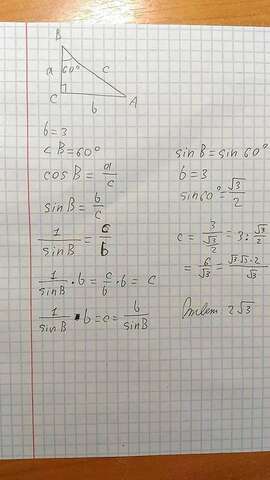 B
a 60° c
C b A
b=3
∠B=60°
cosB = a/c
sinB = b/c
1/sinB = c/b
1/sinB · b = c/b · b = c
1/sinB · b = c = b/sinB
sinB = sin60°
b=3
sin60° = √3/2
c = 3/(√3/2) = 3 : √3/2
= 6/√3 = √3·√3·2/√3
Ответ 2√3